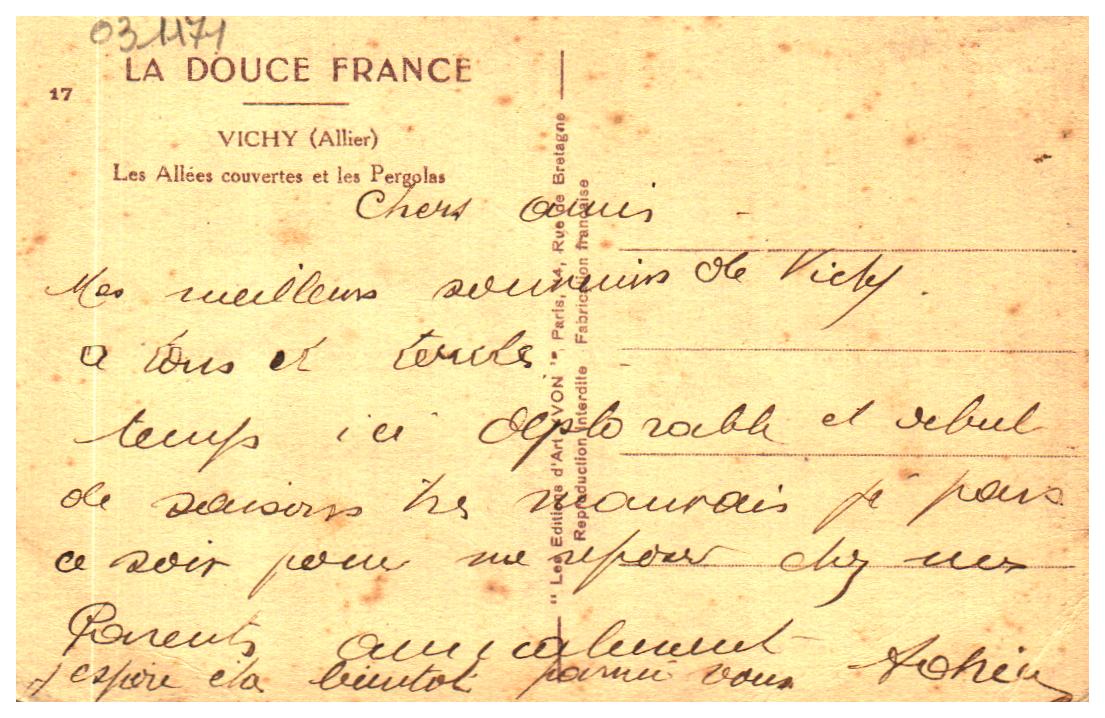 031171
LA DOUCE FRANCE
17
VICHY (Allier)
Les Allées couvertes et les Pergolas
Chers amis
Mes meilleurs souvenirs de Vichy.
a tous et toutes.
temps ici deplorable et debut
de saisons tres mauvais je pars
ce soir pour me reposer chez mes
Parents amicalement
j'espere eta bientot parmi vous
" Les Editions d'Art YVON ", Paris, 14, Rue de Bretagne
Reproduction Interdite Fabrication française